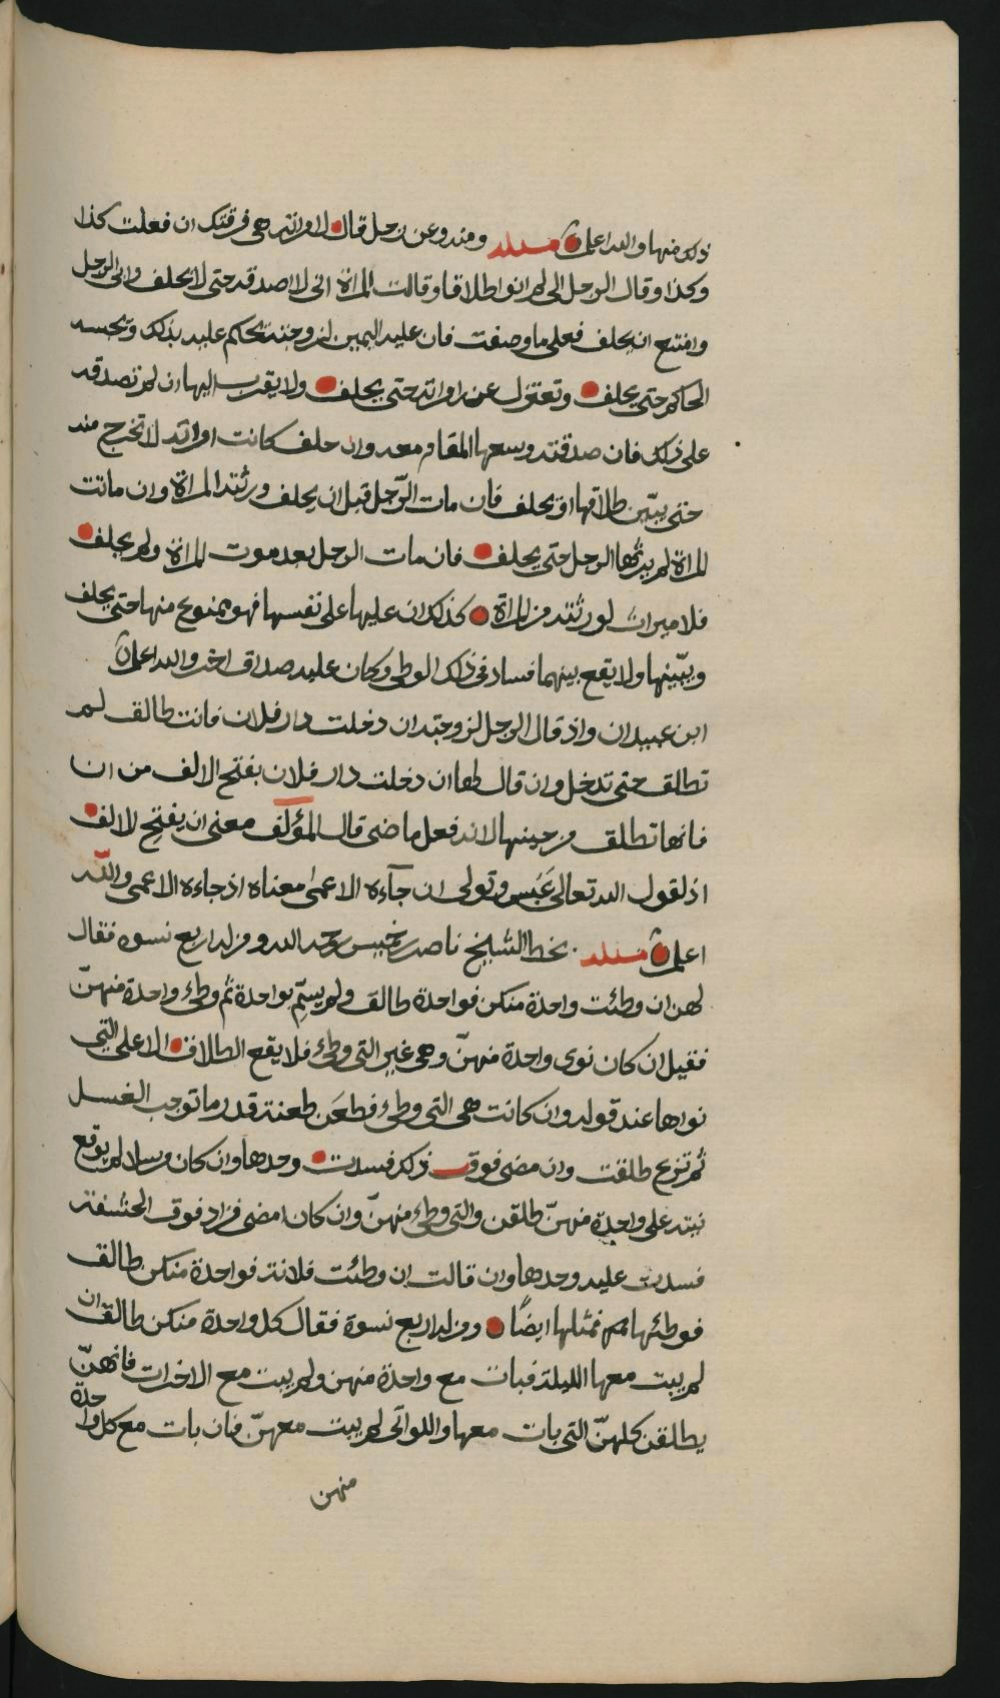 ذلك منها والله اعلم مسئلة ومنه وعن رجل قال لامراته هي فرقتك ان فعلت كذا
وكذا وقال الرجل اني لم انوا طلاقا وقالت المراة اني لا اصدقه حتى لا يحلف وابى الرجل
وامتنع ان يحلف فعلى ما وصفت فان عليه اليمين لزوجته يحكم عليه بذلك ويحبسه
الحاكم حتى يحلف وتعتزل عن امراته حتى يحلف ولا يقرب اليها ان لم تصدقه
على ذلك فان صدقته وسعها المقام معه وان حلف كانت امراته لا تخرج منه
حتى يبين طلاقها او يحلف فان مات الرّجل قبل ان يحلف ورثته المراة وان ماتت
المراة لم يرثها الرجل حتى يحلف فان مات الرجل بعد موت المراة ولم يحلف
فلا ميراث لورثته من المراة كذلك ان عليها على نفسها فهو ممنوع منها حتى يحلف
ويبّينها ولا يقع بينهما فساد في ذلك الوطي وكان عليه صداق اخر والله اعلم
ابن عبيدان واذ قال الرجل لزوجته ان دخلت دار فلان فانت طالق لم
تطلق حتى تدخل وان قال لها ان دخلت دار فلان بفتح الالف من ان
فانها تطلق من حينها لانه فعل ماضى قال المؤلف معنى ان يفتح الالف
اذ لقول الله تعالى عَبَس وتولى ان جآءه الاعمى معناه اذ جاءه الاعمى واللّه
اعلم مسئلة بخط الشيخ ناصر بن خميس رحمه الله ومن له اربع نسوه فقال
لهن ان وطئت واحدة منكن فواحدة طالق ولم يسمّ بواحدة ثم وطئ واحدة منهنّ
فقيل ان كان نوى واحدة منهنّ وهي غير التي وطئ فلا يقع الطلاق الا على التي
نواها عند قوله وان كانت هي التي وطئ فطعن طعنة قدر ما توجب الغسل
ثم نزع طلقت وان مضى فوق ذلك فسدت وحدها وان كان مرسلا لم يوقع
نيته على واحدة منهنّ طلقن والتي وطئ منهنّ وان كان امضى فزاد فوق الحشفة
فسدت عليه وحدها وان قالت ان وطئت فلانة فواحدة منكن طالق
فوطئها فمثلها ايضًا ومن له اربع نسوة فقال كل واحدة منكن طالق ان
لم يبت معها الليلة فبات مع واحدة منهن ولم يبت مع الاخرات فانهنّ
يطلقن كلهنّ التي بات معها واللواتي لم يبت معهنّ فان بات مع كل واحدة
منهن